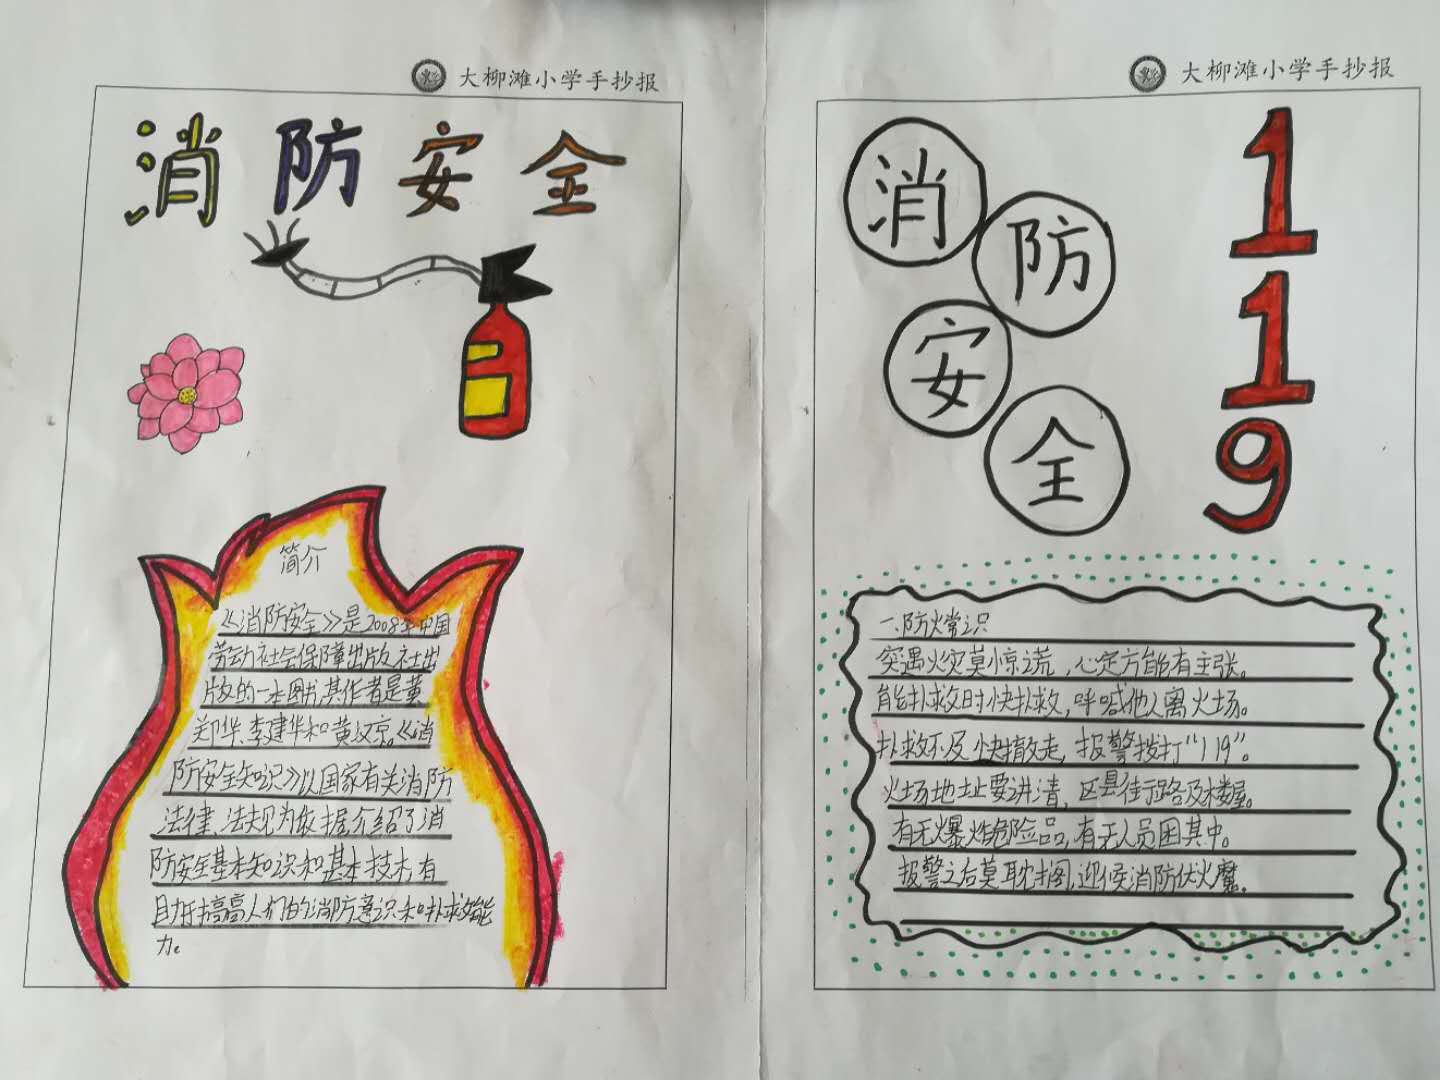 大柳滩小学手抄报
消防安全
简介
《消防安全》是2008年中国
劳动社会保障出版社出
版的一本图书,其作者是黄
郑华、李建华和黄汉京。《消
防安全知识》以国家有关消防
法律、法规为依据介绍了消
防安全基本知识和基本技术,有
助于提高人们的消防意识和扑救能
力。
大柳滩小学手抄报
消
防
安
全
119
一.防火常识
突遇火灾莫惊谎,心定方能有主张。
能扑救时快扑救,呼喊他人离火场。
扑救不及快撤走,报警拨打“119”。
火场地址要讲清,区县街路及楼屋。
有无爆炸危险品,有无人员困其中。
报警之后莫耽搁,迎候消防伏火魔。